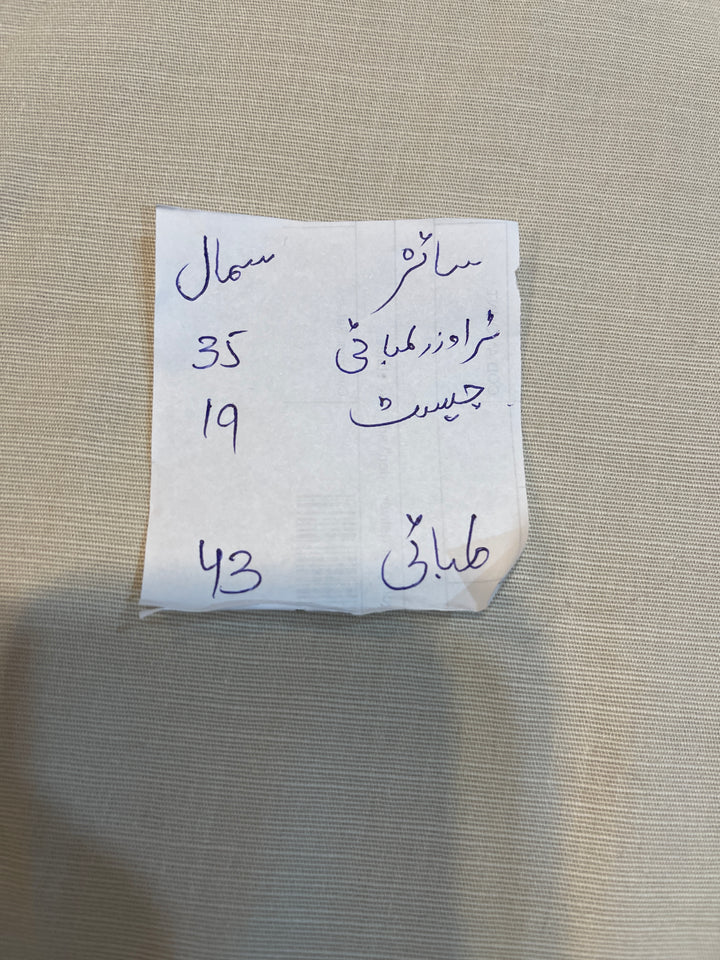 سائز سمال
ٹراوزر لمبائی 35
چیسٹ 19
لمبائی 43